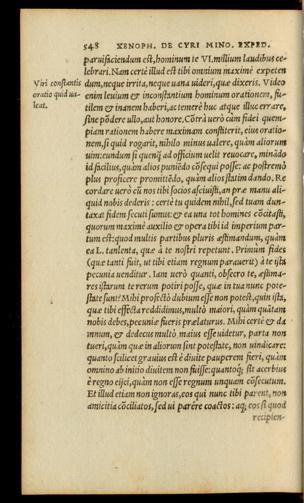 548 XENOPH. DE CYRI MINO. EXPED.
paruifaciendum est, hominum te VI. millium laudibus ce-
lebrari. Nam certè illud est tibi omnium maximè expeten
dum, neque irrita, neque uana uideri, quæ dixeris. Video
Viri constantis
oratio quid ua-
leat.
enim leuium & inconstantium hominum orationem, fu-
tilem & inanem haberi, ac temerè huc atque illuc errare,
sine põdere ullo, aut honore. Cõtrà uerò cùm fidei quem-
piam rationem habere maximam constiterit, eius oratio-
nem, si quid rogarit, nihilo minus ualere, quàm aliorum
uim: eundum si quenquã ad officium uelit reuocare, minãdo
id facilius, quàm alios puniédo cõsequi posse: ac postremò
plus proficere promittẽdo, quàm alios statim dando. Re
cordare uerò cũ nos tibi socios asciuisti, an præ manu ali-
quid nobis dederis: certè tu quidem nihil, sed tuam dun-
taxat fidem secuti sumus: & ea una tot homines cõcitasti,
quorum maximè auxilio & opera tibi id imperium par-
tum est: quod multis partibus pluris æstimandum, quàm
ea L. talenta, quæ à te nostri repetunt. Primùm fides
(quæ tanti fuit, ut tibi etiam regnum parauerit) à te ista
pecunia uenditur. Iam uerò quanti, obsecro te, æstima-
res istarum te rerum potiri posse, quæ in tua nunc pote-
state sunt? Mihi profectò dubium esse non potest, quin ista,
quæ tibi effecta reddidimus, multò maiori, quàm quãtam
nobis debes, pecuniæ fueris prælaturus. Mihi certè & da
mnum, & dedecus multò maius esse uidetur, parta non
tueri, quàm quæ in aliorum sint potestate, non uindicare:
quanto scilicet grauius est è diuite pauperem fieri, quàm
omnino ab initio diuitem non fuisse: quantoq; sit acerbius
è regno eijci, quàm non esse regnum unquam cõsecutum.
Et illud etiam non ignoras, eos qui nunc tibi parent, non
amicitia cõciliatos, sed ui parére coactos: atq; eos si quod
recipien-